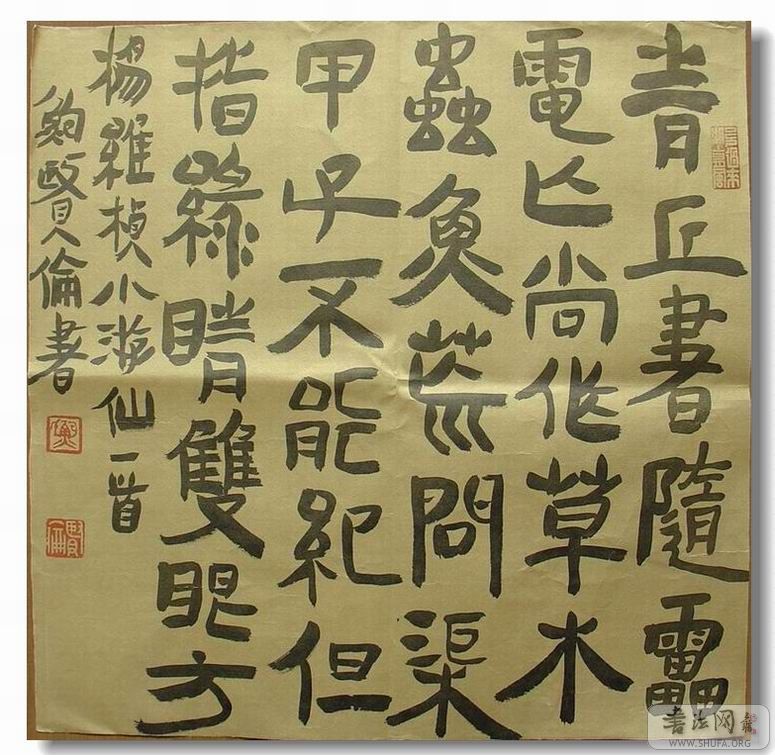 青丘書隨靁
電亡尚作草木
蟲魚荒問渠
甲子不能紀但
指綠睛雙眼方
楊維楨小游仙一首
倫書
書法网
WWW.SHUFA.ORG